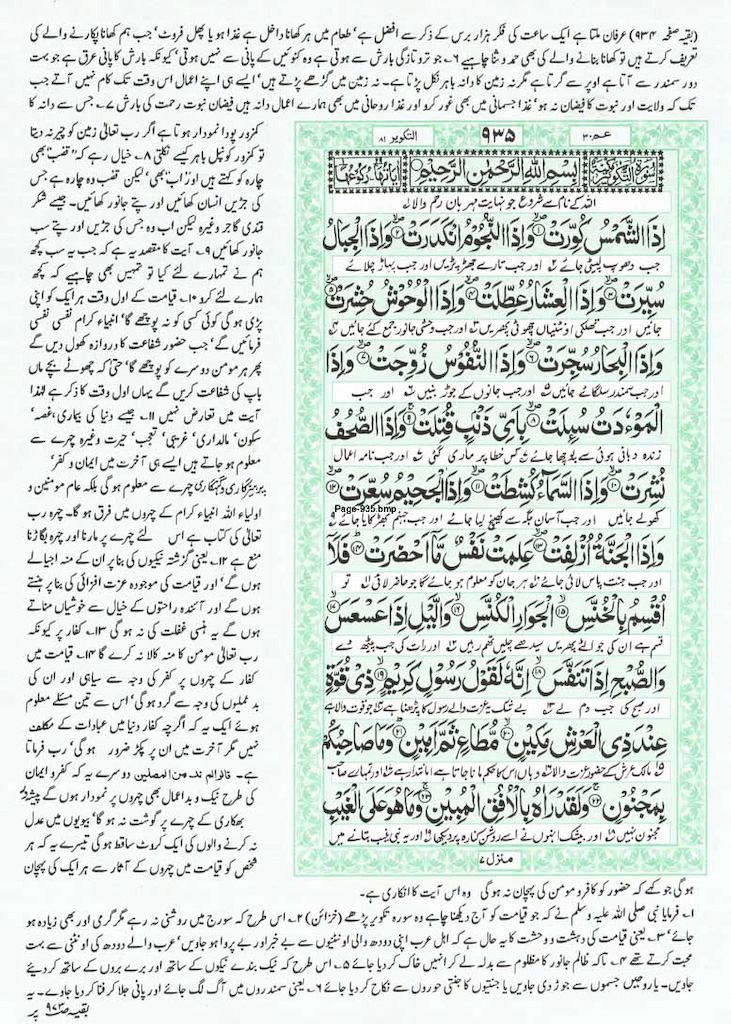 (بقیہ صفحہ ۹۳۴) عرفان ملتا ہے ایک ساعت کی فکر ہزار برس کے ذکر سے افضل ہے' طعام میں ہر کھانا داخل ہے غذا ہو یا پھل فروٹ' جب ہم کھانا پکانے والے کی
تعریف کرتے ہیں تو کھانا بنانے والے کی بھی حمد و ثنا چاہیے ۶۔ جو تر و تازگی بارش سے ہوتی ہے وہ کنوئیں کے پانی سے نہیں ہوتی' کیونکہ بارش کا پانی عرق ہے جو بہت
دور سمندر سے آتا ہے اوپر سے گرتا ہے مگر نہ زمین کا دانہ باہر نکل پڑتا ہے۔ نہ زمین میں گڑھے پڑتے ہیں' ایسے ہی اپنے اعمال اس وقت تک کام نہیں آتے جب
تک کہ ولایت اور نبوت کا فیضان نہ ہو' غذا جسمانی میں بھی غور کرو اور غذا روحانی میں بھی ہمارے اعمال دانہ ہیں فیضان نبوت رحمت کی بارش ۷۔ جس سے دانہ کا
کمزور پودا نمودار ہوتا ہے اگر رب تعالٰی زمین کو چیر نہ دیتا
تو کمزور کونپل باہر کیسے نکلتی ۸۔ خیال رہے کہ' قضب' بھی
چارہ کو کہتے ہیں اور' اب' بھی' لیکن قضب وہ چارہ ہے جس
کی جڑیں انسان کھائیں اور پتے جانور کھائیں۔ جیسے شکر
قندی گاجر وغیرہ لیکن اب وہ جس کی جڑیں اور پتے سب
جانور کھائیں ۹۔ آیت کا مقصد یہ ہے کہ جب یہ سب کچھ
ہم نے تمہارے لئے کیا تو تمہیں بھی چاہیے کہ کچھ
ہمارے لئے کرو ۱۰۔ قیامت کے اول وقت ہر ایک کو اپنی
پڑی ہو گی کوئی کسی کو نہ پوچھے گا' انبیاء کرام نفسی نفسی
فرمائیں گے' جب حضور شفاعت کا دروازہ کھول دیں گے
پھر ہر مومن دوسرے کو پوچھے گا' حتیٰ کہ چھوٹے بچے ماں
باپ کی شفاعت کریں گے یہاں اول وقت کا ذکر ہے لہٰذا
آیت میں تعارض نہیں ۱۱۔ جیسے دنیا کی بیماری' غصہ'
سکون' مالداری' غریبی' تعجب' حیرت وغیرہ چہرے سے
معلوم ہو جاتے ہیں ایسے ہی آخرت میں ایمان و کفر'
پرہیزگاری و گنہگاری چہرے سے معلوم ہو گی بلکہ عام مومنین و
اولیاء اللہ انبیاء کرام کے چہروں میں فرق ہو گا۔ چہرہ رب
تعالٰی کی کتاب ہے اس لئے چہرے پر مارنا اور چہرہ بگاڑنا
منع ہے ۱۲۔ یعنی گزشتہ نیکیوں کی بنا پر ان کے منہ اجیالے
ہوں گے' اور قیامت کی موجودہ عزت افزائی کی بنا پر ہنستے
ہوں گے اور آئندہ راحتوں کے خیال سے خوشیاں مناتے
ہوں گے یہ ہنسی غفلت کی نہ ہو گی ۱۳۔ کفار پر کیونکہ
رب تعالٰی مومن کا منہ کالا نہ کرے گا ۱۴۔ قیامت میں
کفار کے چہروں پر کفر کی وجہ سے سیاہی اور ان کی
بد عملیوں کی وجہ سے گرد ہو گی' اس سے تین مسئلے معلوم
ہوئے ایک یہ کہ اگرچہ کفار دنیا میں عبادات کے مکلف
نہیں مگر آخرت میں ان پر پکڑ ضرور ہو گی' رب فرماتا
ہے۔ قالوا لم نک من المصلین دوسرے یہ کہ کفر و ایمان
کی طرح نیک و بد اعمال بھی چہروں پر نمودار ہوں گے پیشہ ور
بھکاری کے چہرے پر گوشت نہ ہو گا' بیویوں میں عدل
نہ کرنے والوں کی ایک کروٹ ساقط ہو گی تیسرے یہ کہ ہر
شخص کو قیامت میں چہروں کے آثار سے ہر ایک کی پہچان
ہو گی جو کہے کہ حضور کو کافر و مومن کی پہچان نہ ہو گی وہ اس آیت کا انکاری ہے۔
عمّ ۳۰
۹۳۵
التکویر ۸۱
سُوْرَةُ التَّكْوِيْرِ مَكِّيَّةٌ
بِسْمِ اللّٰهِ الرَّحْمٰنِ الرَّحِيْمِ
اللہ کے نام سے شروع جو نہایت مہربان رحم والا
اِذَا الشَّمْسُ كُوِّرَتْ ۙ۱ وَاِذَا النُّجُوْمُ انْكَدَرَتْ ۙ۲ وَاِذَا الْجِبَالُ
جب دھوپ لپیٹی جائے اور جب تارے جھڑ پڑیں اور جب پہاڑ چلائے
سُيِّرَتْ ۙ۳ وَاِذَا الْعِشَارُ عُطِّلَتْ ۙ۴ وَاِذَا الْوُحُوْشُ حُشِرَتْ ۙ۵
جائیں اور جب تھلکی اونٹنیاں چھوٹی پھریں اور جب وحشی جانور جمع کئے جائیں
وَاِذَا الْبِحَارُ سُجِّرَتْ ۙ۶ وَاِذَا النُّفُوْسُ زُوِّجَتْ ۙ۷ وَاِذَا
اور جب سمندر سلگائے جائیں اور جب جانوں کے جوڑ بنیں اور جب
الْمَوْءٗدَةُ سُىِٕلَتْ ۙ۸ بِاَيِّ ذَنْۢبٍ قُتِلَتْ ۚ۹ وَاِذَا الصُّحُفُ
زندہ دبائی ہوئی سے پوچھا جائے کس خطا پر ماری گئی اور جب نامہ اعمال
نُشِرَتْ ۙ۱۰ وَاِذَا السَّمَآءُ كُشِطَتْ ۙ۱۱ وَاِذَا الْجَحِيْمُ سُعِّرَتْ ۙ۱۲
Page-935.bmp
کھولے جائیں اور جب آسمان جگہ سے کھینچ لیا جائے اور جب جہنم بھڑکایا جائے
وَاِذَا الْجَنَّةُ اُزْلِفَتْ ۙ۱۳ عَلِمَتْ نَفْسٌ مَّاۤ اَحْضَرَتْ ۱۴ فَلَاۤ
اور جب جنت پاس لائی جائے ہر جان کو معلوم ہو جائے گا جو حاضر لائی تو
اُقْسِمُ بِالْخُنَّسِ ۙ۱۵ الْجَوَارِ الْكُنَّسِ ۙ۱۶ وَالَّيْلِ اِذَا عَسْعَسَ ۙ۱۷
قسم ہے ان کی جو الٹے پھریں سیدھے چلیں تھم رہیں اور رات کی جب پیٹھ دے
وَالصُّبْحِ اِذَا تَنَفَّسَ ۙ۱۸ اِنَّهٗ لَقَوْلُ رَسُوْلٍ كَرِيْمٍ ۙ۱۹ ذِيْ قُوَّةٍ
اور صبح کی جب دم لے بے شک یہ عزت والے رسول کا پڑھنا ہے جو قوت والا ہے
عِنْدَ ذِي الْعَرْشِ مَكِيْنٍ ۙ۲۰ مُّطَاعٍ ثَمَّ اَمِيْنٍ ۲۱ وَمَا صَاحِبُكُمْ
مالک عرش کے حضور عزت والا وہاں اس کا حکم مانا جاتا ہے امانتدار ہے اور تمہارے صاحب
بِمَجْنُوْنٍ ۲۲ وَلَقَدْ رَاٰهُ بِالْاُفُقِ الْمُبِيْنِ ۲۳ وَمَا هُوَ عَلَى الْغَيْبِ
مجنون نہیں اور بیشک انہوں نے اسے روشن کنارہ پر دیکھا اور یہ نبی غیب بتانے میں
منزل ۷
۱۔ فرمایا نبی صلی اللہ علیہ وسلم نے کہ جو قیامت کو آج دیکھنا چاہے وہ سورہ تکویر پڑھے (خزائن) ۲۔ اس طرح کہ سورج میں روشنی نہ رہے مگر گرمی اور بھی زیادہ ہو
جائے' ۳۔ یعنی قیامت کی دہشت و وحشت کا یہ حال ہے کہ اہل عرب اپنی دودھ والی اونٹنیوں سے بے خبر اور بے پروا ہو جاویں' عرب والے دودھ کی اونٹنی سے بہت
محبت کرتے تھے ۴۔ تاکہ ظالم جانور کا مظلوم سے بدلہ لے کر انہیں خاک کر دیا جائے ۵۔ اس طرح کہ نیک بندے نیکوں کے ساتھ اور برے بروں کے ساتھ کر دیئے
جاویں۔ یا روحیں جسموں سے جوڑ دی جاویں یا جنتیوں کا جنتی حوروں سے نکاح کر دیا جائے ۶۔ یعنی سمندروں میں آگ لگ جائے اور پانی جلا کر فنا کر دیا جاوے۔ یہ
بقیہ صفحہ ۹۷۳ پر